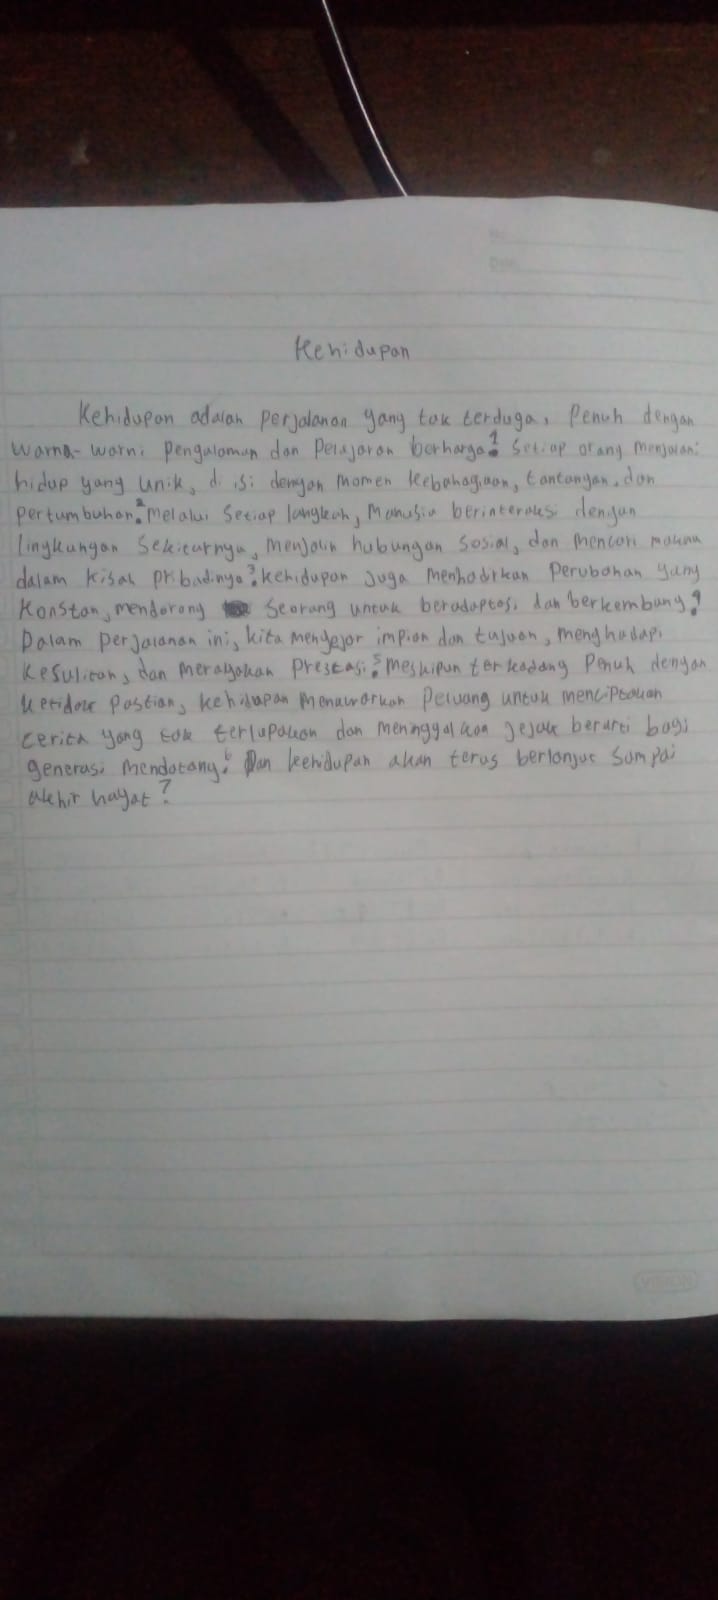 No
Date
Kehidupan
Kehidupan adalah perjalanan yang tak terduga, Penuh dengan
warna-warni pengalaman dan Pelajaran berharga.1 Setiap orang menjalani
hidup yang unik, di isi dengan momen kebahagiaan, tantangan, dan
pertumbuhan.2 Melalui setiap langkah, Manusia berinteraksi dengan
lingkungan Sekitarnya, menjalin hubungan sosial, dan mencari makna
dalam kisah pribadinya.3 kehidupan juga menhadirkan Perubahan yang
Konstan, mendorong seorang untuk beradaptasi dan berkembang.4
Dalam perjalanan ini, kita mengejar impian dan tujuan, menghadapi
kesulitan, dan merayakan Prestasi.5 meskipun terkadang Penuh dengan
ketidak pastian, kehidupan menawarkan Peluang untuk menciptakan
cerita yang tak terlupakan dan meninggalkan jejak berarti bagi
generasi mendatang.6 Dan kehidupan akan terus berlanjut sampai
akhir hayat.7
VISION